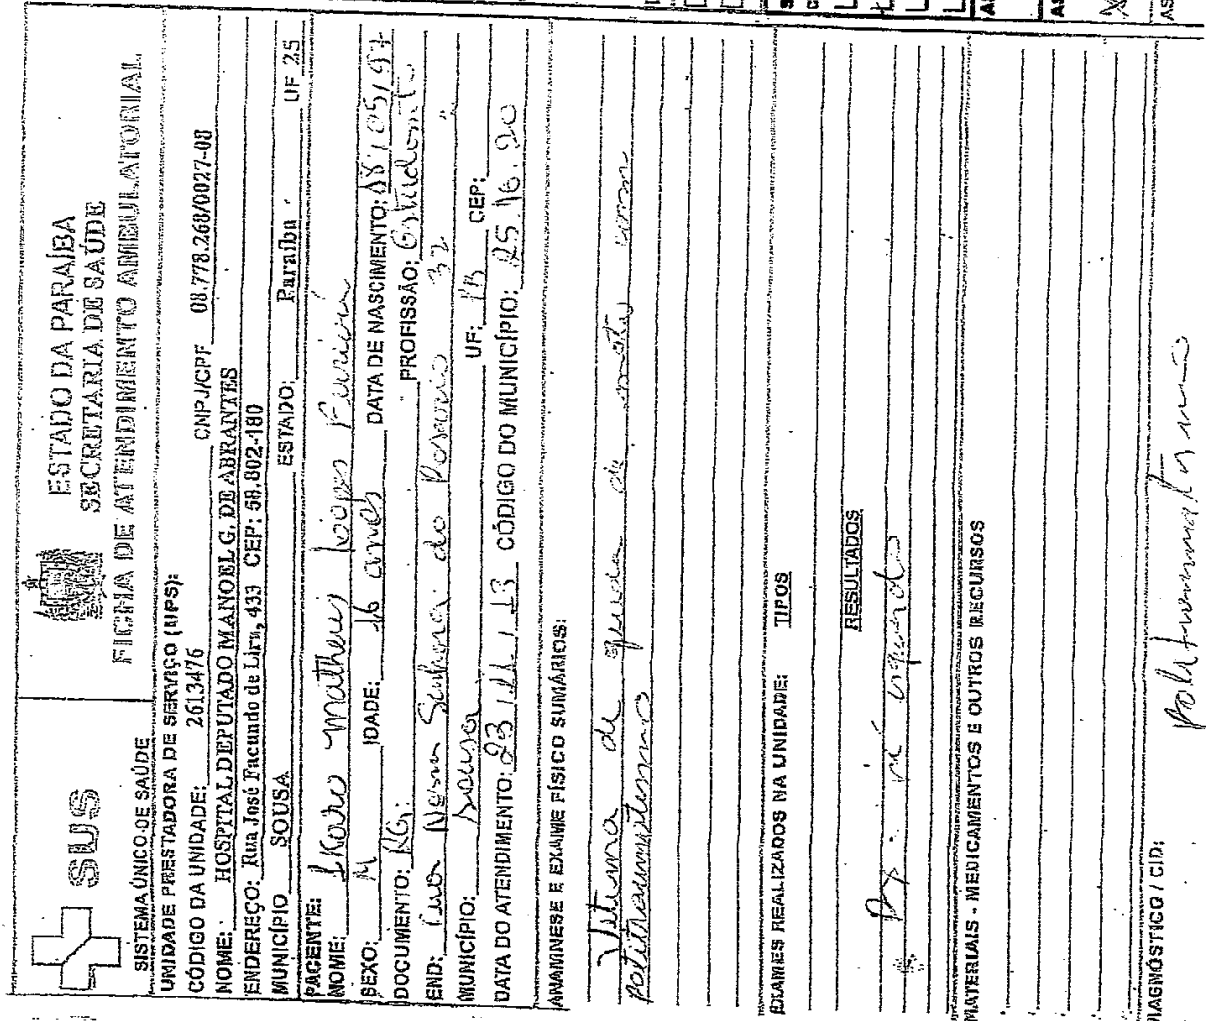 SUS
SISTEMA ÚNICO DE SAÚDE
ESTADO DA PARAÍBA
SECRETARIA DE SAÚDE
FICHA DE ATENDIMENTO AMBULATORIAL
UNIDADE PRESTADORA DE SERVIÇO (UPS):
CÓDIGO DA UNIDADE: 2613476 CNPJ/CPF 08.778.268/0027-08
NOME: HOSPITAL DEPUTADO MANOEL G. DE ABRANTES
ENDEREÇO: Rua José Facundo de Lira, 433 CEP: 58.802-180
MUNICÍPIO SOUSA ESTADO: Paraíba UF 25
PACIENTE:
NOME: Ikaro Matheus Lopes
SEXO: M IDADE: 16 anos DATA DE NASCIMENTO: 08/05/97
DOCUMENTO: RG: PROFISSÃO: Estudante
END: Rua Nossa Senhora do Rosario 32
MUNICÍPIO: Sousa UF: PB CEP:
DATA DO ATENDIMENTO: 23/11/13 CÓDIGO DO MUNICÍPIO: 25.16.20
ANAMNESE E EXAME FÍSICO SUMÁRIOS:
Vitima de queda de moto com
politraumatismo
EXAMES REALIZADOS NA UNIDADE: TIPOS
RESULTADOS
MATERIAIS - MEDICAMENTOS E OUTROS RECURSOS
DIAGNÓSTICO / CID:
Politraumatismo